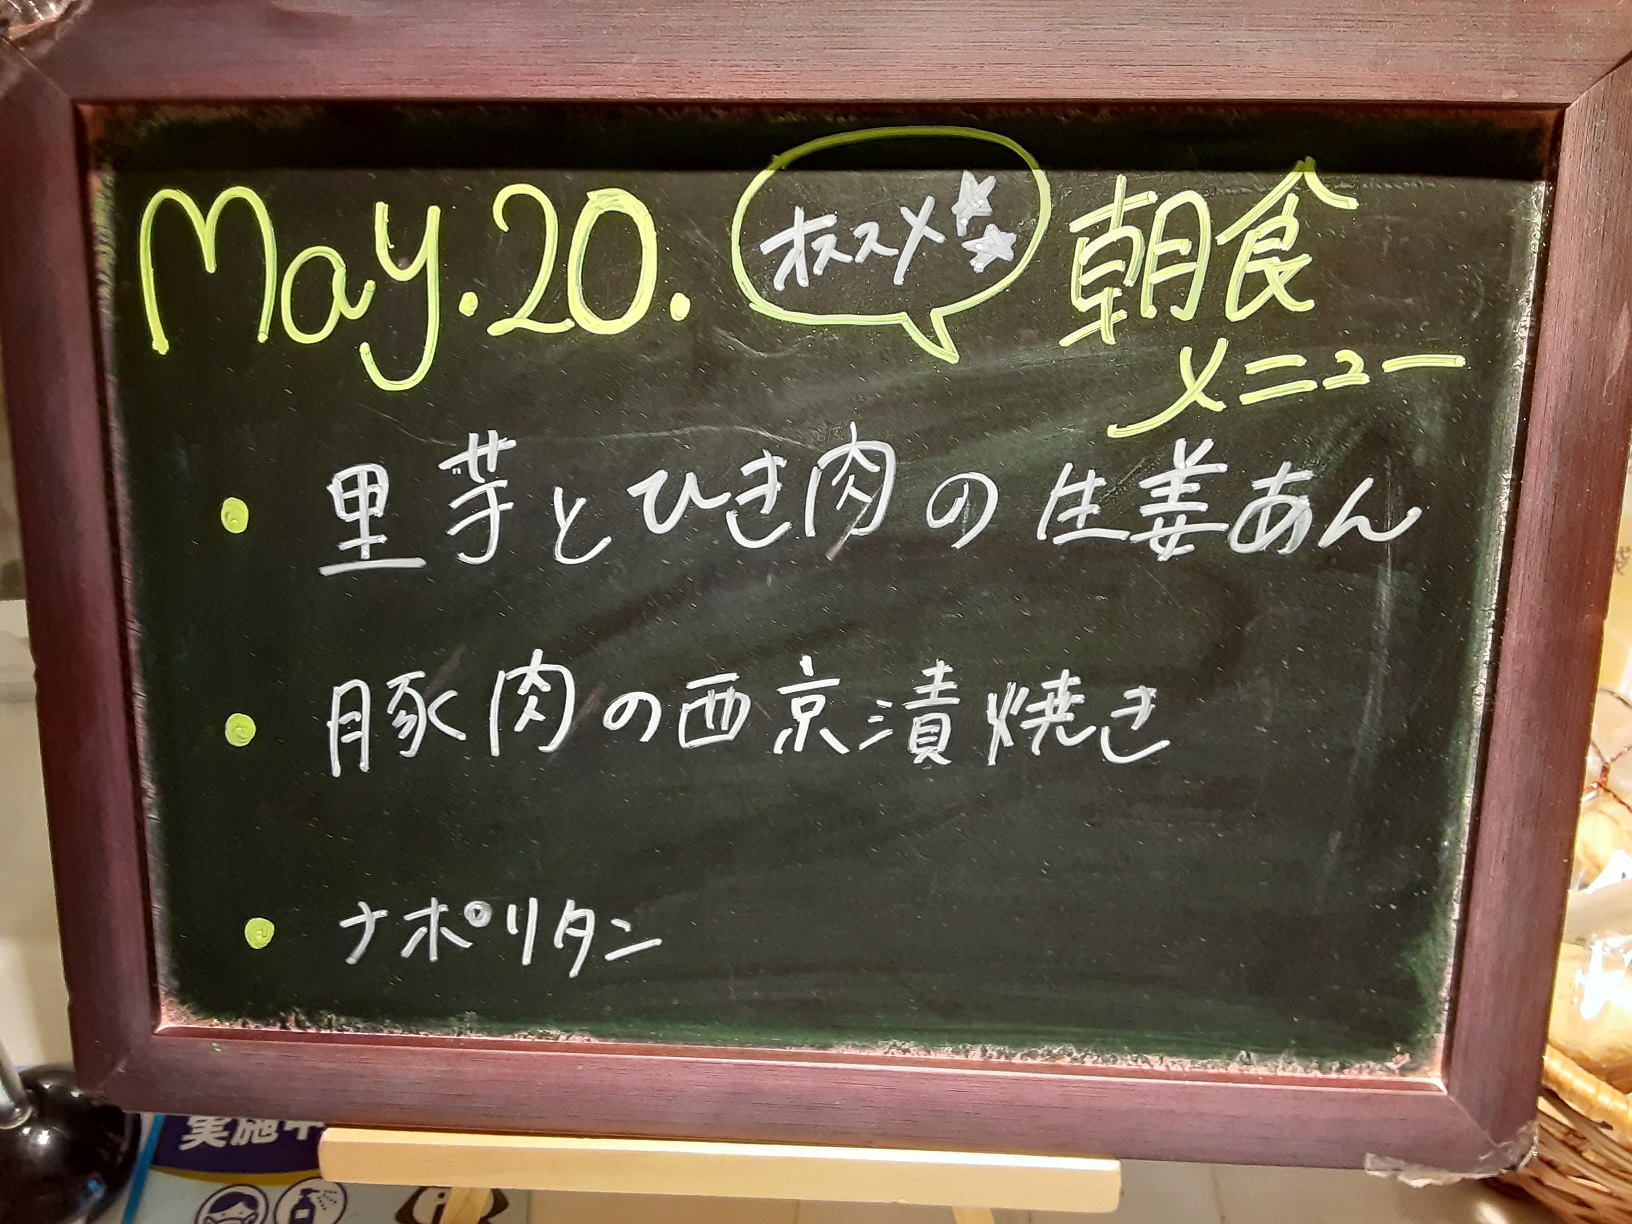 May.20. オススメ 朝食
メニュー
・里芋とひき肉の生姜あん
・豚肉の西京漬焼き
・ナポリタン
実施中